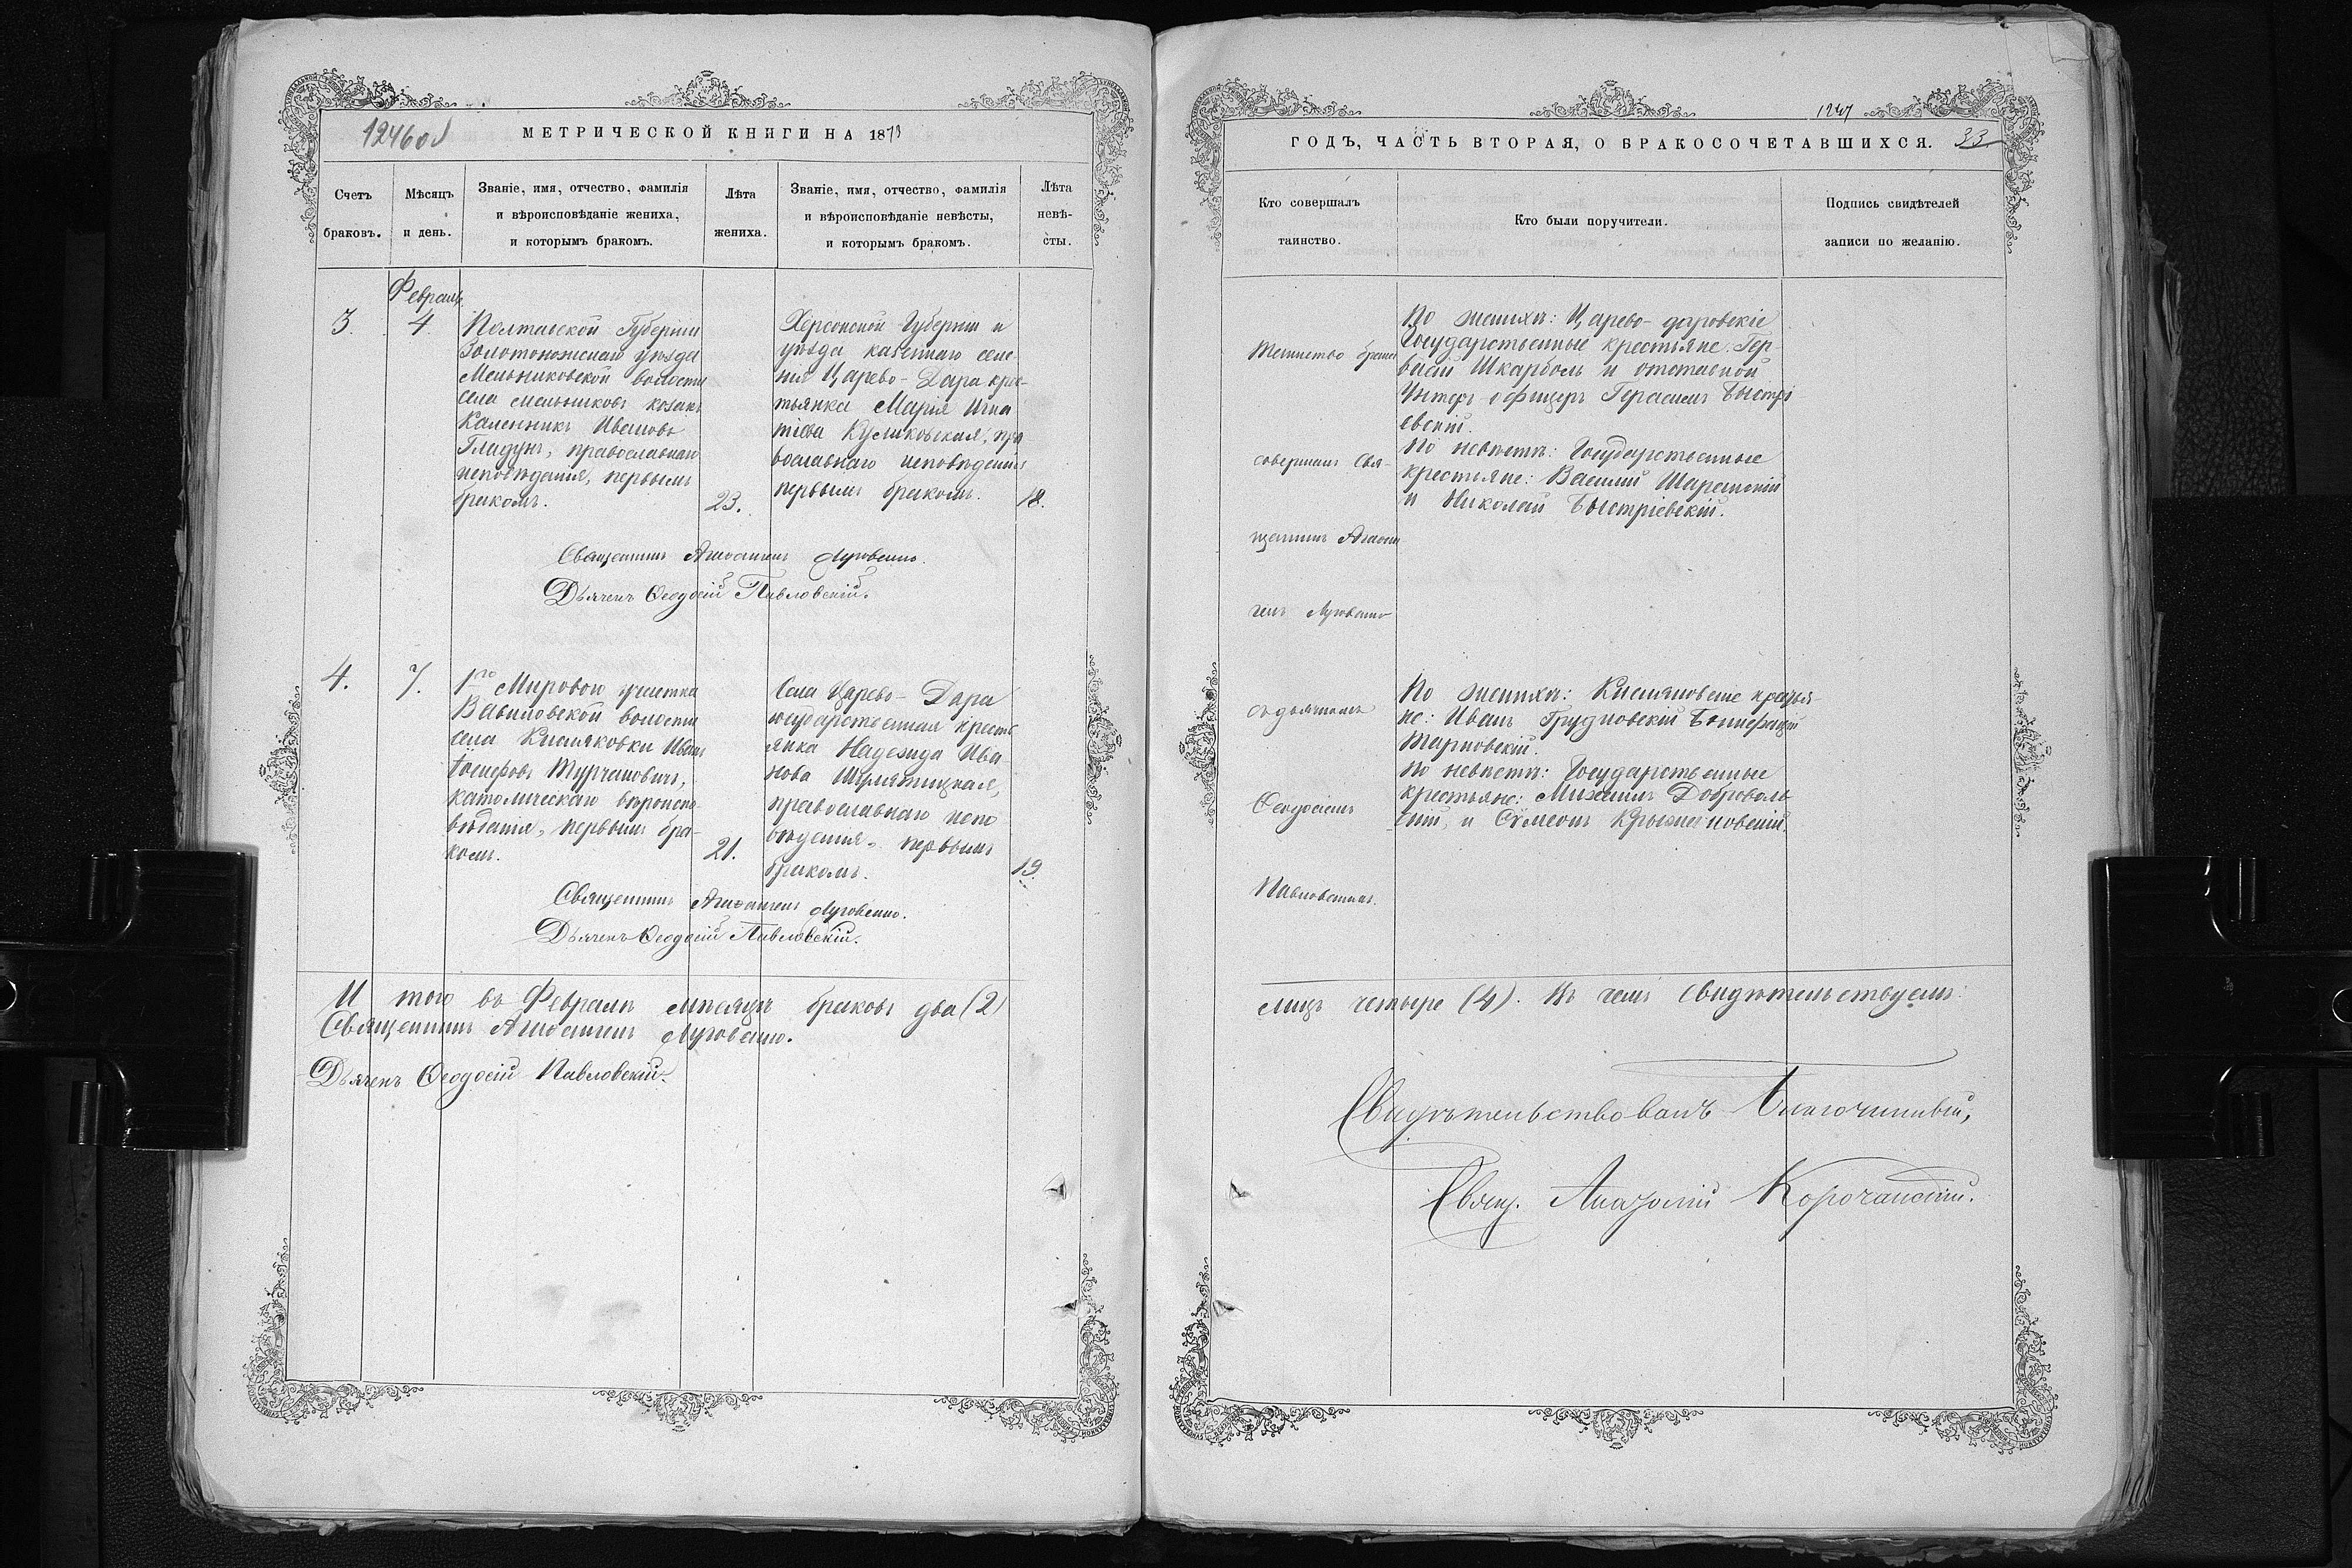 12460
МЕТРИЧЕСКОЙ КНИГИ НА 1873
Счетъ браковъ.
Мѣсяцъ и день.
Званіе, имя, отчество, фамилія
и вѣроисповѣданіе жениха,
и которымъ бракомъ.
Лѣта
жениха.
Званіе, имя, отчество, фамилія
и вѣроисповѣданіе невѣсты,
и которымъ бракомъ.
Лѣта
невѣ-
сты.
Февраль
3.
4.
Полтавской Губерніи
Золотоношскаго уѣзда
Мельниковской волости
села Мельниковъ козакъ
Каленникъ Ивановъ
Гладунъ, православнаго
исповѣданія, первымъ
бракомъ.
23.
Херсонской Губерніи и
уѣзда казеннаго селе-
нія Царево-Дара крес-
тьянка Марія Игна
тіева Куликовская, пра
вославнаго исповѣданія
первымъ бракомъ.
18.
Священникъ Агаѳангелъ Луговенко.
Дьячекъ Ѳеодосій Павловскій.
4.
7.
1го Мироваго участка
Вавиловской волости
села Кисляковки Иванъ
Іосифовъ Турчановичъ,
католическаго вѣроиспо-
вѣданія, первымъ бра-
комъ.
21.
Села Царево-Дара
государственная кресть
янка Надежда Ива
нова
православнаго испо
вѣданія, первымъ
бракомъ.
19.
Священникъ Агаѳангелъ Луговенко.
Дьячекъ Ѳеодосій Павловскій.
И того въ Февралѣ мѣсяцѣ браковъ два (2)
Священникъ Агаѳангелъ Луговенко.
Дьячекъ Ѳеодосій Павловскій.
1247
ГОДЪ, ЧАСТЬ ВТОРАЯ, О БРАКОСОЧЕТАВШИХСЯ.
33
Кто совершалъ
таинство.
Кто были поручители.
Подпись свидѣтелей
записи по желанію.
Таинство брака
совершалъ Свя-
щенникъ Агаѳан
гелъ Луговенко
съ дьячкомъ
Ѳеодосіемъ
Павловскимъ.
По женихѣ: Царево-даровскіе
Государственные крестьяне: Гер-
васій Шкарболъ и отставной
Унтеръ-офицеръ Герасимъ Быстрі
евскій.
По невѣстѣ: Государственные
крестьяне: Василій
и Николай Быстріевскій.
По женихѣ: Кисляковскіе крестья-
не: Иванъ Грудновскій Бонифацій
Тарновскій.
По невѣстѣ: Государственные
крестьяне: Михаилъ Доброволь
скій, и Сѵмеонъ
лицъ четыре (4). Въ чемъ свидѣтельствуемъ:
Свидѣтельствовалъ Благочинный,
Свящ. Анатолій Корочанскій.